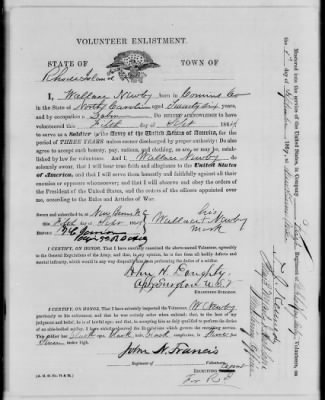 VOLUNTEER ENLISTMENT.
STATE OF TOWN OF
Rhode Island
I, Wallace Newby born in
in the State of North Carolina aged Twenty six years,
and by occupation a Do HEREBY ACKNOWLEDGE to have
volunteered this day of Sept 1864
to serve as a Soldier in the Army of the United States of America, for
the period of THREE YEARS unless sooner discharged by proper authority: Do also
agree to accept such bounty, pay, rations, and clothing, as are, or may be, estab-
lished by law for volunteers. And I, Wallace Newby do
solemnly swear, that I will bear true faith and allegiance to the United States
of America, and that I will serve them honestly and faithfully against all their
enemies or opposers whomsoever; and that I will observe and obey the orders
of the President of the United States, and the orders of the officers appointed over
me, according to the Rules and Articles of War.
Sworn and subscribed to, at
this day of 186
Before
his
Wallace Newby
mark
I CERTIFY, ON HONOR, That I have carefully examined the above-named Volunteer, agreeably
to the General Regulations of the Army, and that, in my opinion, he is free from all bodily defects and
mental infirmity, which would in any way disqualify him from performing the duties of a soldier.
John H. Doughty
EXAMINING SURGEON.
I CERTIFY, ON HONOR, That I have minutely inspected the Volunteer, W. Newby
previously to his enlistment, and that he was entirely sober when enlisted; that, to the best of my
judgment and belief, he is of lawful age; and that, in accepting him as duly qualified to perform the duties
of an able-bodied soldier, I have strictly observed the Regulations which govern the recruiting service.
This soldier has black eyes, black hair, complexion, is feet
inches high.
John N. Francis
Regiment of Volunteers,
RECRUITING OFFICER.
For R I
(A. G. O. No. 74 & 76.)
Mustered into the service of the United States, in Company
Regiment of Volunteers, on
the day of September 1864, at
Mustering Officer